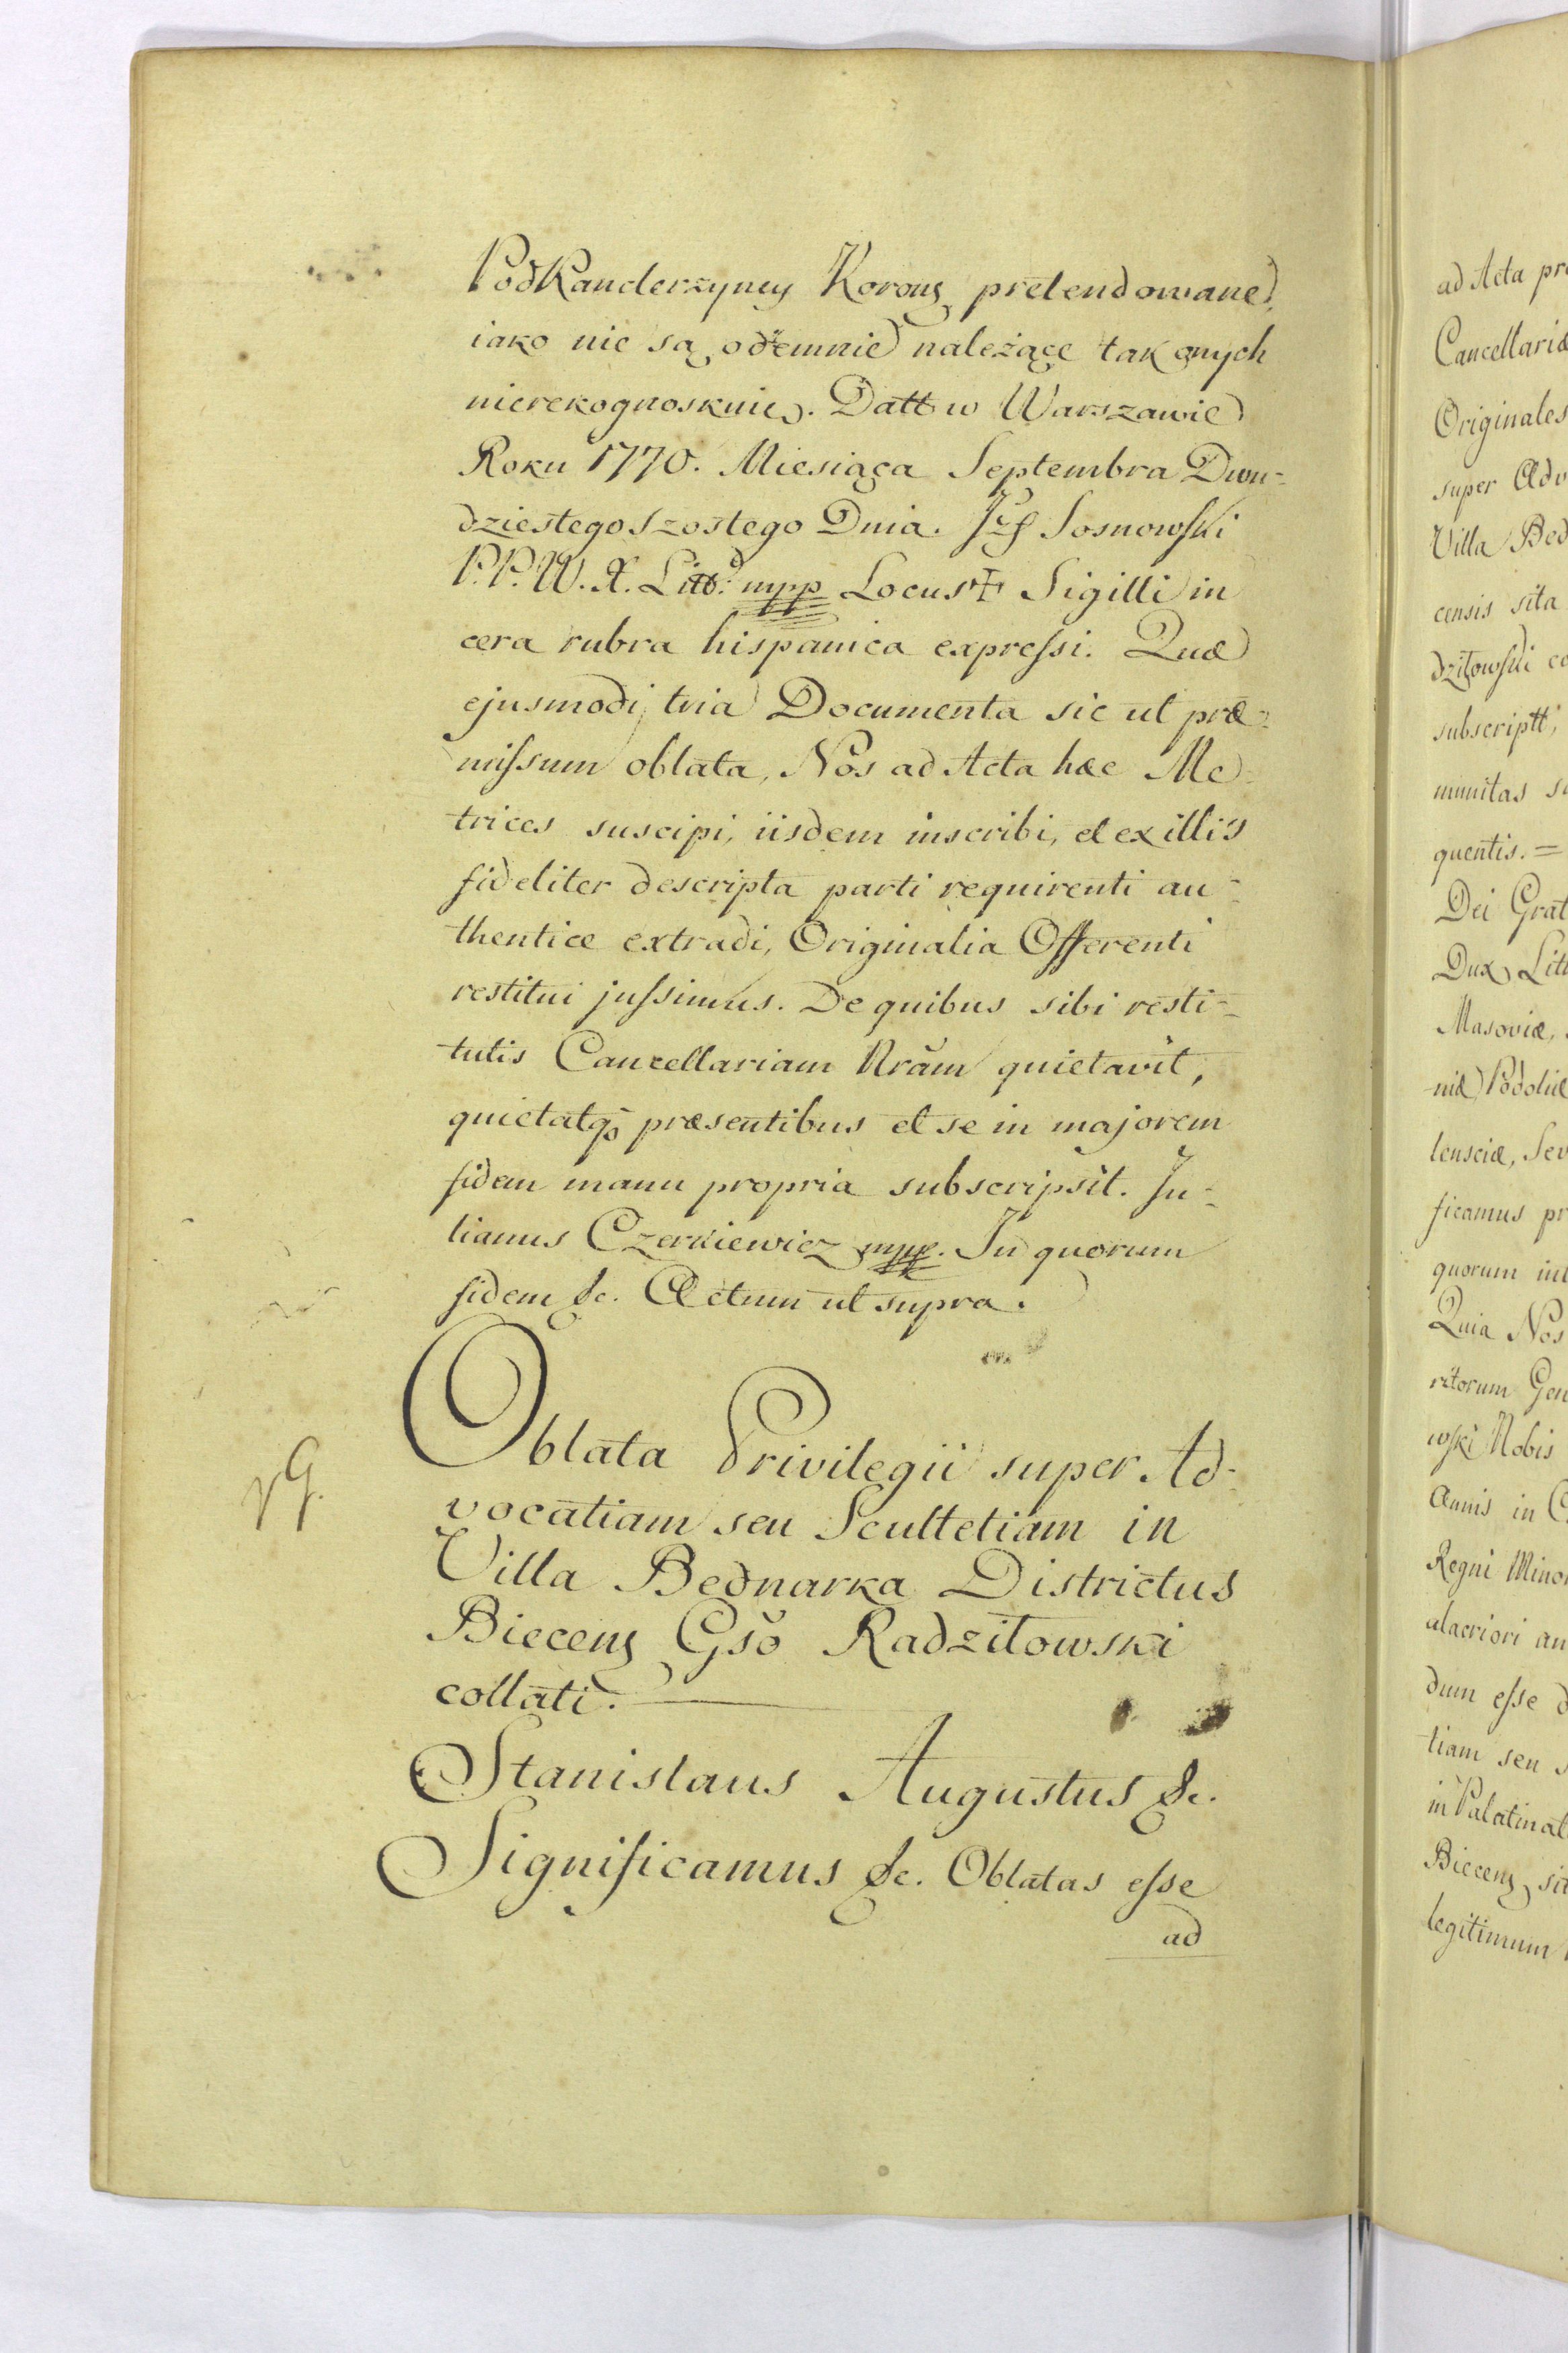 PodKanclerzyney Korony pretendowane,
iako nie są odemnie należące tak onych
nierekognoskuię. Datt w Warszawie
Roku 1770. Miesiąca Septembra Dwu-
dziestego szostego Dnia. Jzf Sosnowski
P.P.W.X. Litt: mpp Locus ✝ Sigilli in
cera rubra hispanica expressi. Quæ
ejusmodi tria Documenta sic ut præ-
missum oblata, Nos ad Acta hæc Me-
trices suscipi, iisdem inscribi, et ex illis
fideliter descripta parti requirenti au-
thentice extradi, Originalia Offerenti
restitui jussimus. De quibus sibi resti-
tutis Cancellariam Nrãm quietavit,
quietatq, præsentibus et se in majorem
fidem manu propria subscripsit. Ju-
lianus Czerkiewicz mpp. In quorum
fidem &c. Actum ut supra.
Oblata Privilegii super Ad-
vocatiam seu Scultetiam in
Villa Bednarka Districtus
Biecens Gsõ Radziłowski
collati.
Stanislaus Augustus &c.
Significamus &c. Oblatas esse
ad
ad Acta
Cancellariæ
Originales
super
Villa
censis sita
dziłowski
subscriptt,
munitas
quentis. =
Dei
Dux
Masoviæ,
niæ Podoliæ
lensciæ,
ficamus
quorum
Quia Nos
ritorum
wski Nobis
Annis in
Regni
alacriori
dum esse
tiam seu
in
Biecens
legitimum